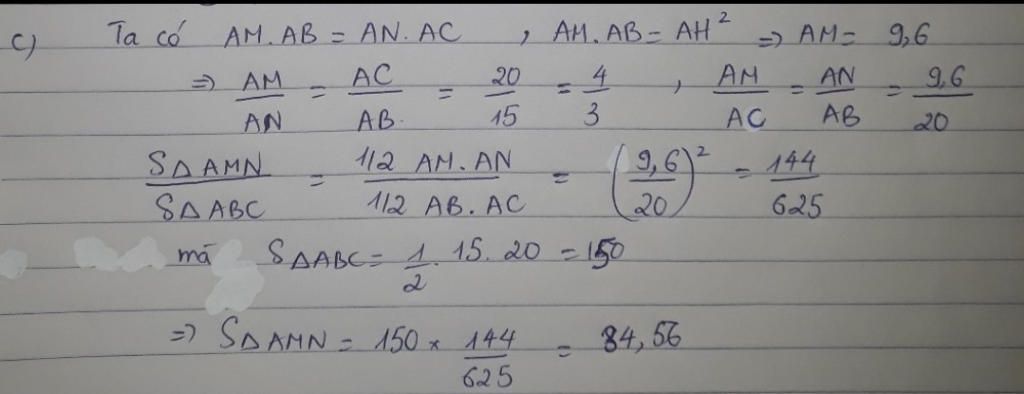 c) Ta có AM.AB = AN.AC , AM.AB = AH² => AM = 9,6
=> AM/AN = AC/AB = 20/15 = 4/3 , AM/AC = AN/AB = 9,6/20
SΔAMN/SΔABC = 1/2 AM.AN / 1/2 AB.AC = (9,6/20)² = 144/625
mà SΔABC = 1/2 . 15. 20 = 150
=> SΔAMN = 150 × 144/625 = 34,56